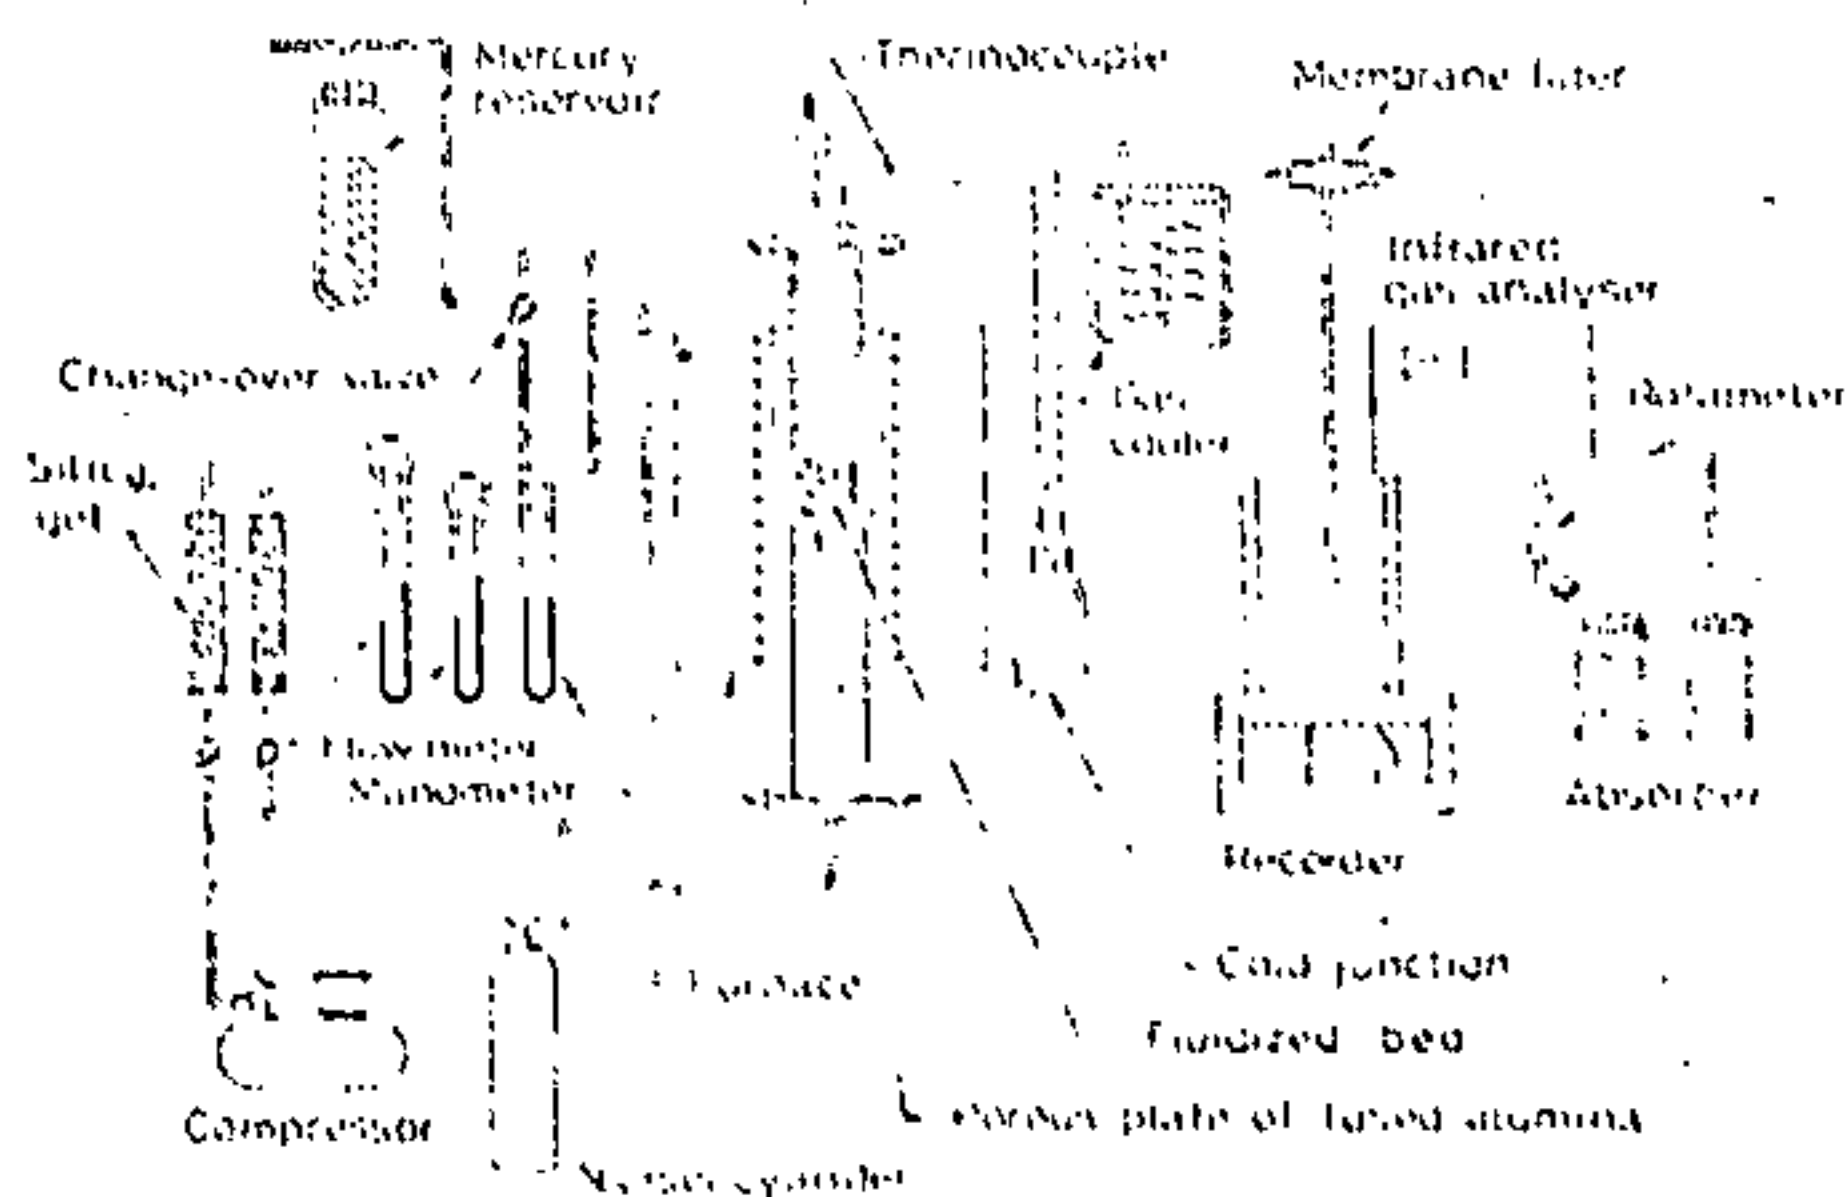 Mercury
reservoir
Thermocouple
Membrane filter
Infrared
gas analyser
Change-over valve
Gas
cooler
Rotameter
Silica
gel
Flow meter
Manometer
Absorber
Recorder
Furnace
Cold junction
Fluidized bed
Compressor
Porous plate of fused alumina
cylinder